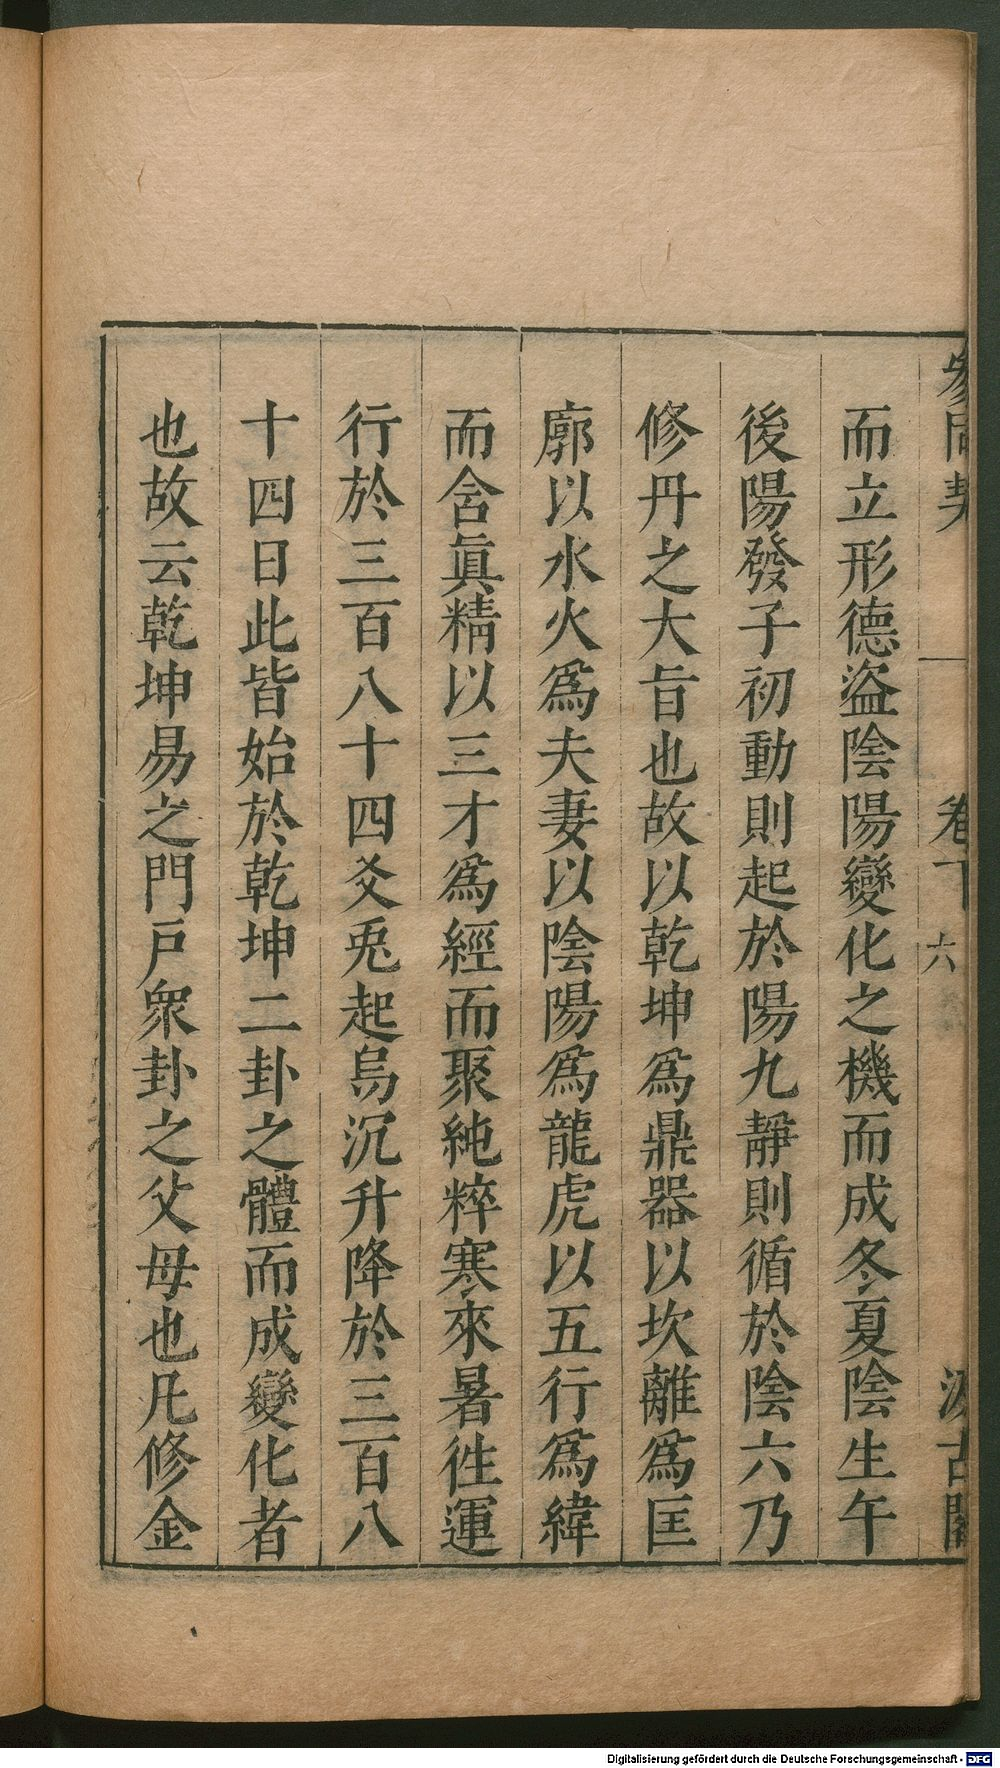 參同契 卷下 六 汲古閣
而立形德盜陰陽變化之機而成冬夏陰生午
後陽發子初動則起於陽九靜則循於陰六乃
修丹之大旨也故以乾坤爲鼎器以坎離爲匡
廓以水火爲夫妻以陰陽爲龍虎以五行爲緯
而含眞精以三才爲經而聚純粹寒來暑徃運
行於三百八十四爻兎起烏沉升降於三百八
十四日此皆始於乾坤二卦之體而成變化者
也故云乾坤易之門戸衆卦之父母也凡修金
Digitalisierung gefördert durch die Deutsche Forschungsgemeinschaft - DFG